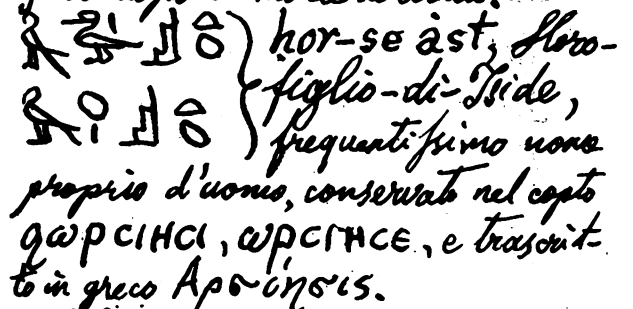 hor-se àst, Horo-
figlio-di-Iside,
frequentiſsimo nome
proprio d'uomo, conservato nel copto
ϩⲱⲣⲥⲓⲏⲥⲓ, ⲱⲣⲥⲓⲏⲥⲉ, e trascrit-
to in greco Αρσιήσις.